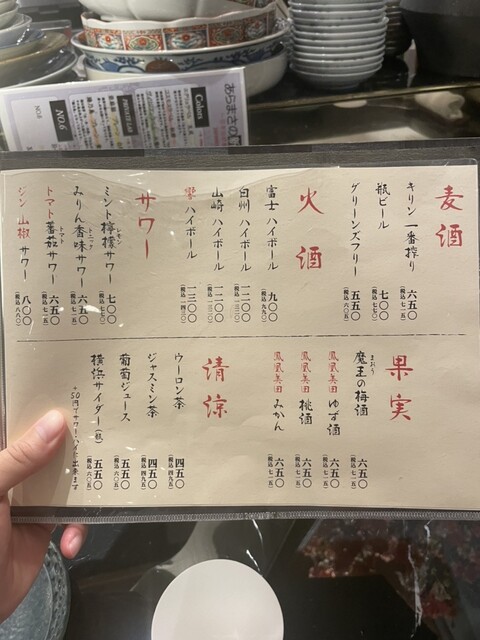 麦酒
キリン一番搾り 六五〇
(税込七一五)
瓶ビール 七〇〇
(税込七七〇)
グリーンズフリー 五五〇
(税込六〇五)
火酒
富士ハイボール 九〇〇
(税込九九〇)
白州ハイボール 一二〇〇
(税込一三二〇)
山崎ハイボール 一二〇〇
(税込一三二〇)
響ハイボール 一三〇〇
(税込一四三〇)
サワー
ミント檸檬サワー 七〇〇
レモン
(税込七七〇)
みりん香味サワー 六五〇
トニック
(税込七一五)
トマト蕃茄サワー 六五〇
トマト
(税込七一五)
ジン山椒サワー 八〇〇
(税込八八〇)
果実
魔王の梅酒 六五〇
まおう
(税込七一五)
鳳凰美田 ゆず酒 六五〇
(税込七一五)
鳳凰美田 桃酒 六五〇
(税込七一五)
鳳凰美田 みかん 六五〇
(税込七一五)
清涼
ウーロン茶 四五〇
(税込四九五)
ジャスミン茶 四五〇
(税込四九五)
葡萄ジュース 五五〇
(税込六〇五)
横浜サイダー(瓶) 五五〇
(税込六〇五)
+50円でサワー・ハイに出来ます
あらまさの
Colors
NO.6